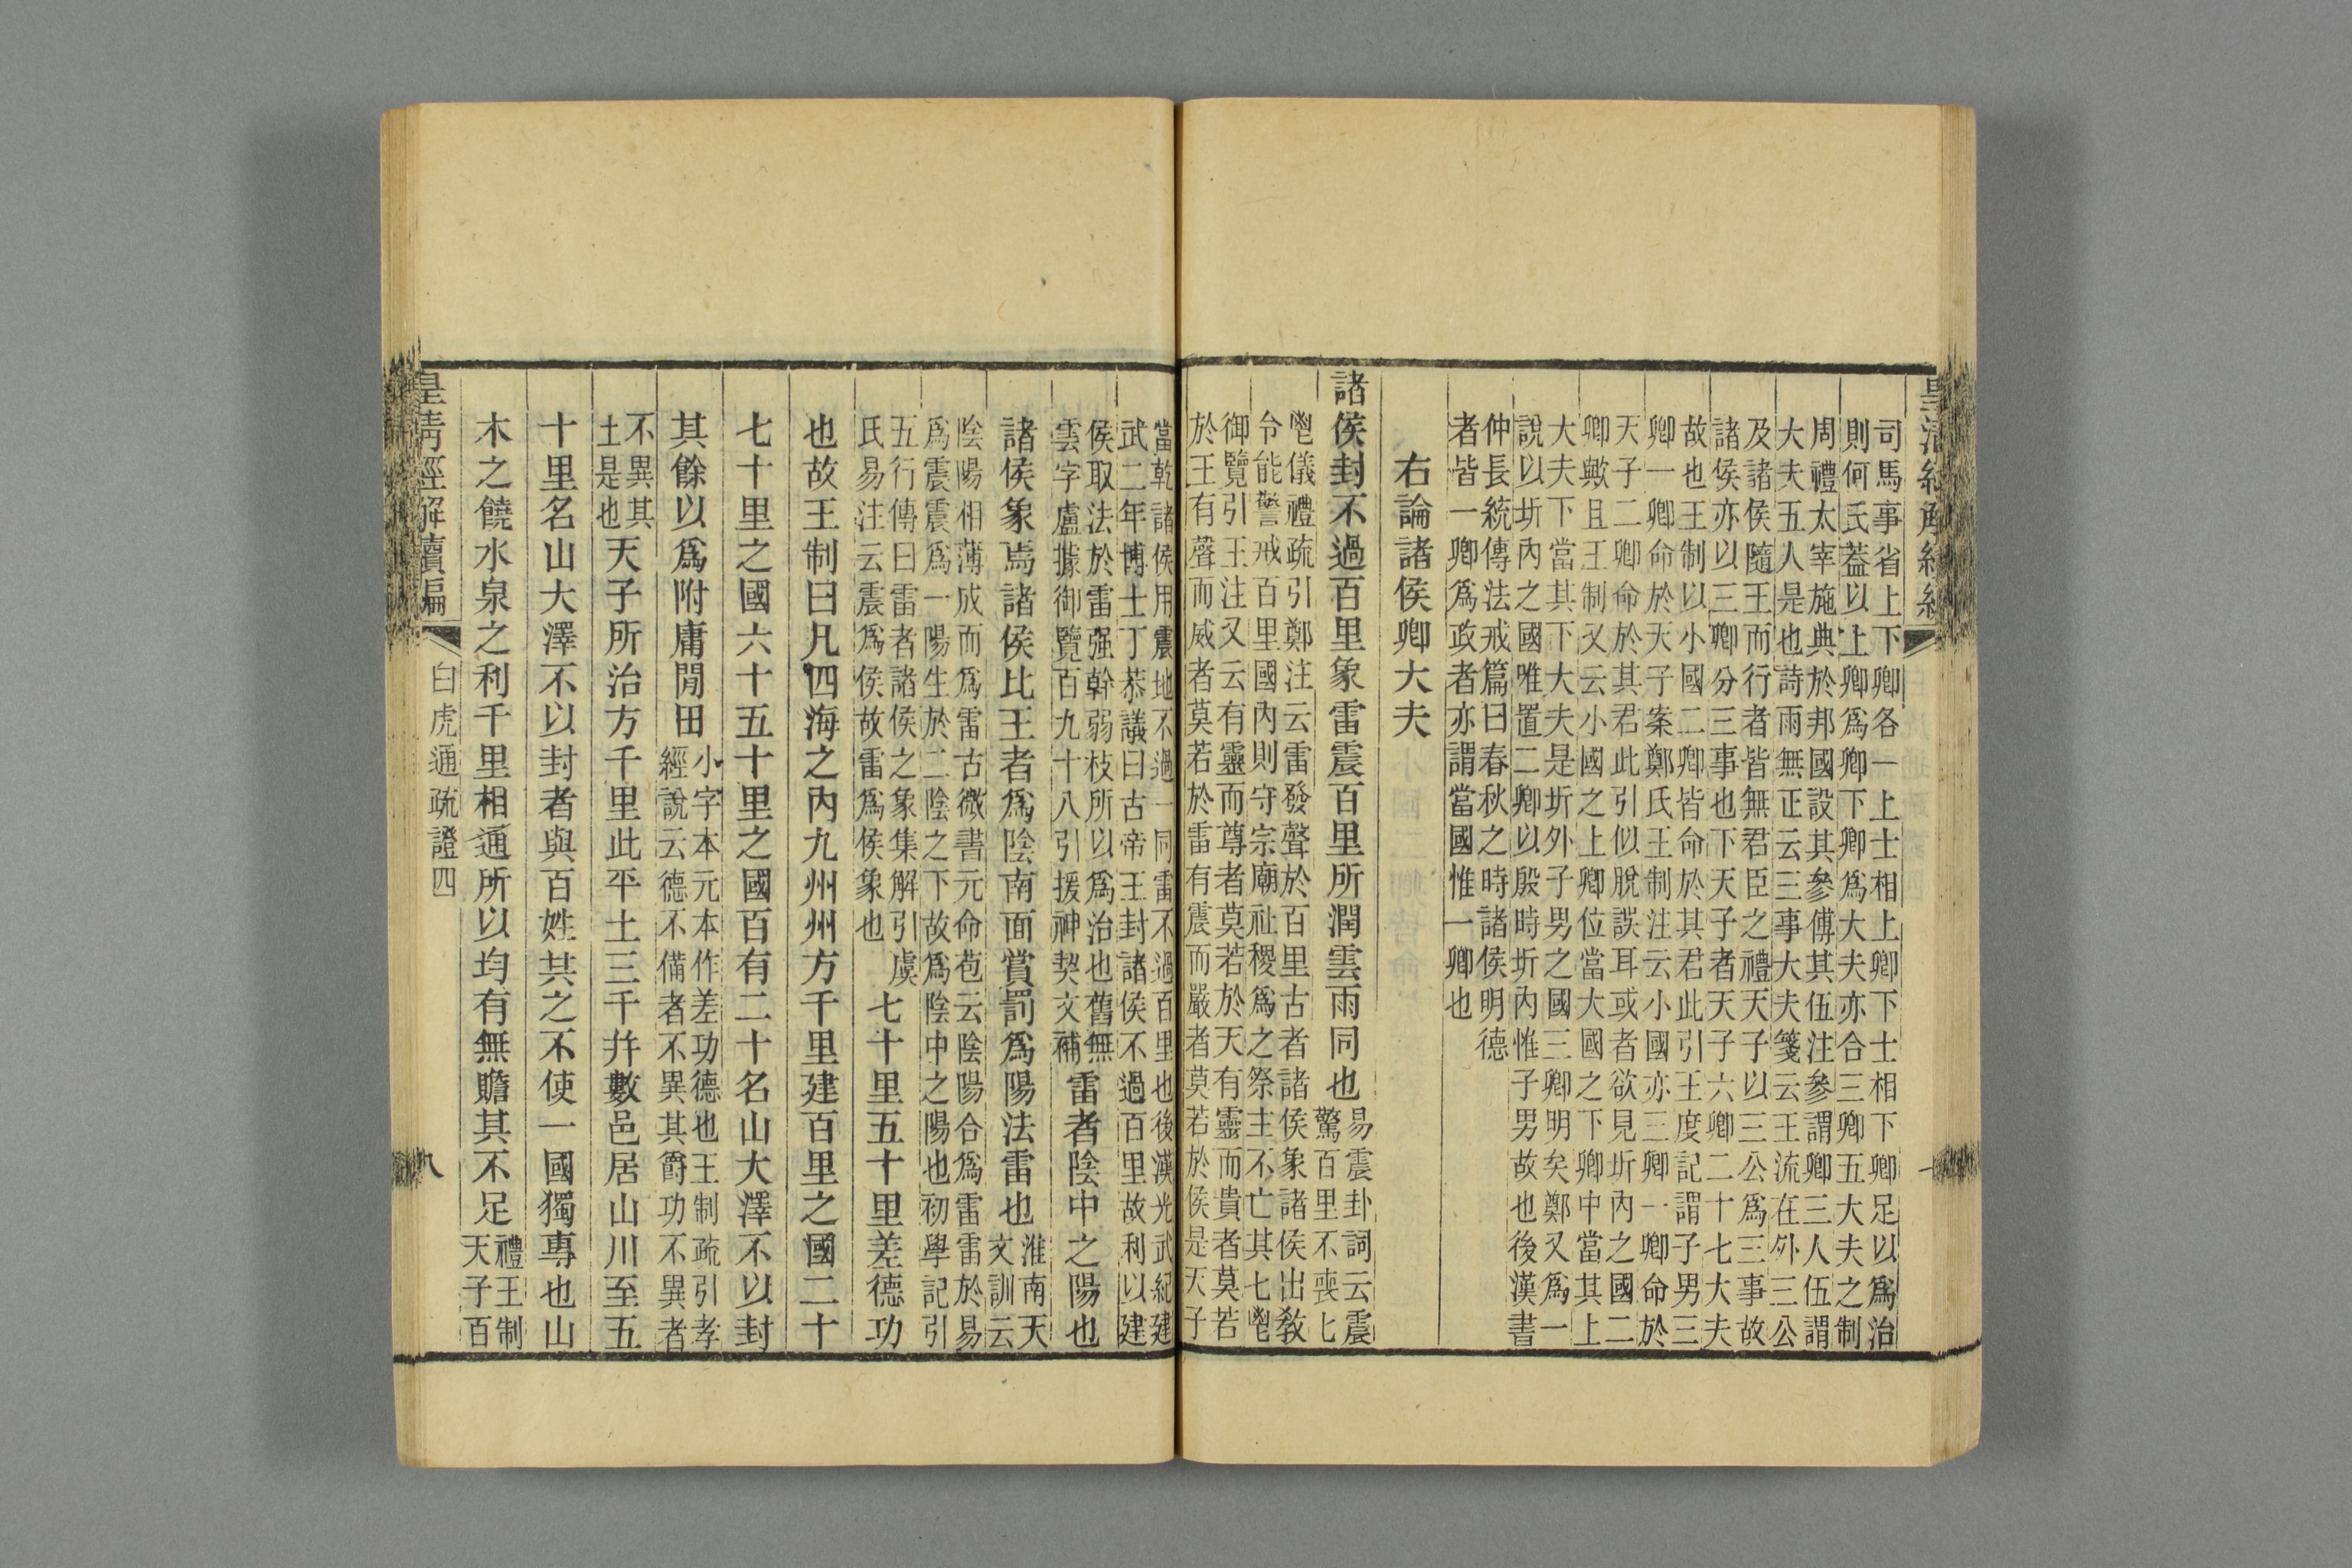 司馬事省上下卿各一上士相上卿下士相下卿足以爲治
則何氏蓋以上卿爲卿下卿爲大夫亦合三卿五大夫之制
周禮太宰施典於邦國設其參傅其伍注參謂卿三人伍謂
大夫五人是也詩雨無正云三事大夫箋云王流在外三公
及諸侯隨王而行者皆無君臣之禮天子以三公爲三事故
諸侯亦以三卿分三事也下天子者天子六卿二十七大夫
故也王制以小國二卿皆命於其君此引王度記謂子男三
卿一卿命於天子案鄭氏王制注云小國亦三卿一卿命於
天子二卿命於其君此引似脫誤耳或者欲見圻內之國二
卿歟且王制又云小國之上卿位當大國之下卿中當其上
大夫下當其下大夫是圻外子男之國三卿明矣鄭又爲一
說以圻內之國唯置二卿以殷時圻內惟子男故也後漢書
仲長統傳法戒篇曰春秋之時諸侯明德
者皆一卿爲政者亦謂當國惟一卿也
右論諸侯卿大夫
諸侯封不過百里象雷震百里所潤雲雨同也
易震卦詞云震
驚百里不喪匕
鬯儀禮疏引鄭注云雷發聲於百里古者諸侯象諸侯出敎
令能警戒百里國內則守宗廟社稷爲之祭主不亡其匕鬯
御覽引王注又云有靈而尊者莫若於天有靈而貴者莫若
於王有聲而威者莫若於雷有震而嚴者莫若於侯是天子
當乾諸侯用震地不過一同雷不過百里也後漢光武紀建
武二年博士丁恭議曰古帝王封諸侯不過百里故利以建
侯取法於雷强幹弱枝所以爲治也舊無
雲字盧據御覽百九十八引援神契文補
雷者陰中之陽也
諸侯象焉諸侯比王者爲陰南面賞罰爲陽法雷也
淮南天
文訓云
陰陽相薄成而爲雷古微書元命苞云陰陽合爲雷雷於易
爲震震爲一陽生於二陰之下故爲陰中之陽也初學記引
五行傳曰雷者諸侯之象集解引虞
氏易注云震爲侯故雷爲侯象也
七十里五十里差德功
也故王制曰凡四海之內九州州方千里建百里之國二十
七十里之國六十五十里之國百有二十名山大澤不以封
其餘以爲附庸閒田
小字本元本作差功德也王制疏引孝
經說云德不備者不異其爵功不異者
不異其
土是也
天子所治方千里此平土三千幷數邑居山川至五
十里名山大澤不以封者與百姓共之不使一國獨專也山
木之饒水泉之利千里相通所以均有無贍其不足
禮王制
天子百
皇淸經解續編
白虎通疏證四
八